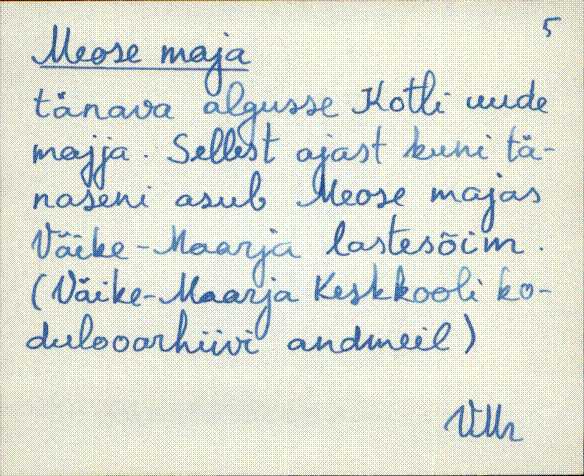 5
Meose maja
tänava algusse Kotli uude
majja. Sellest ajast kuni tä-
naseni asub Meose majas
Väike-Maarja lastesõim.
(Väike-Maarja Keskkooli ko-
dulooarhiivi andmeil)